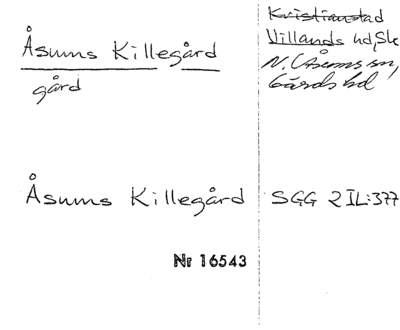 Åsums Killegård
gård
Kristianstad
Villands hd, Sk
N. Åsums sn,
Gärds hd
Åsums Killegård
SGG 2 IL:377
Nr 16543